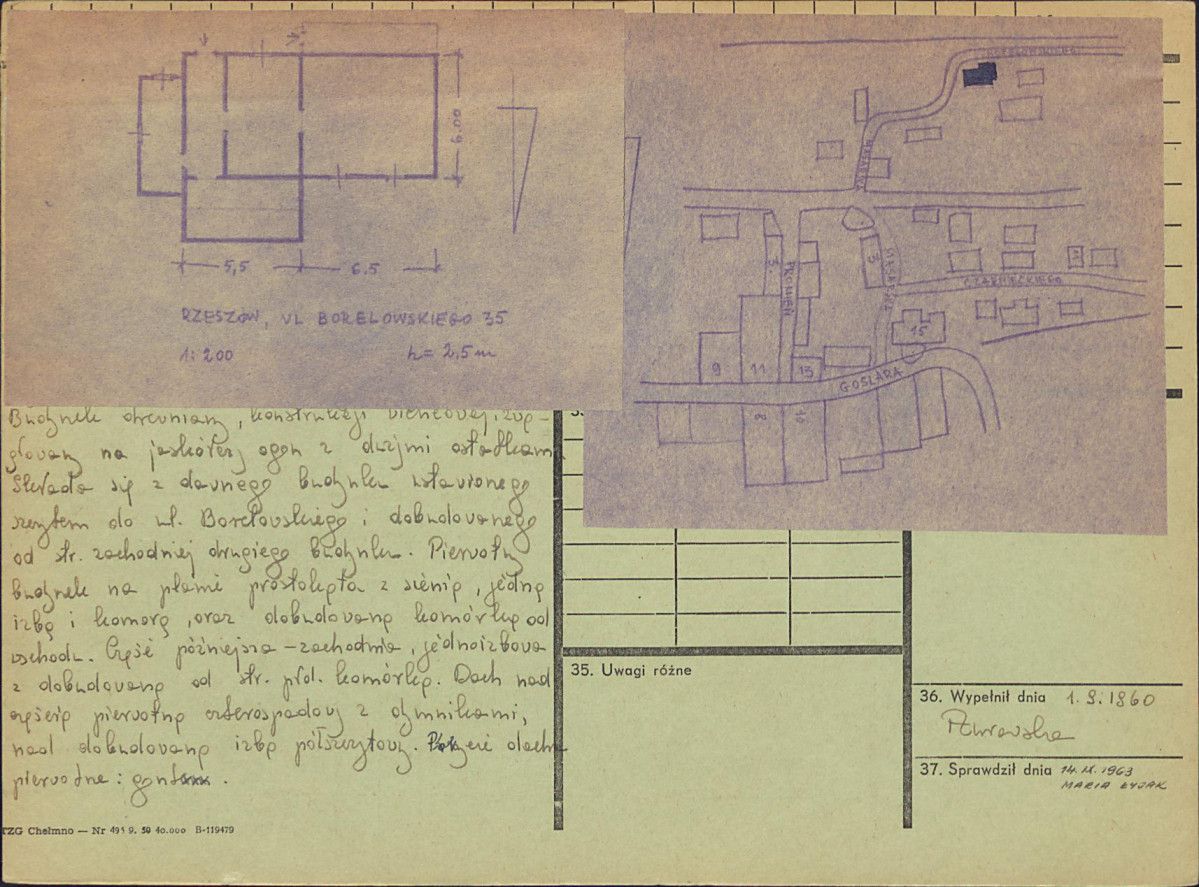 6.00
5,5
6.5
RZESZÓW, UL BORELOWSKIEGO 35
1:200
h= 2,5 m
BORELOWSKIEGO
5.
PROMIEŃ
3
CZARNIECKIEGO
15
9
11
13
GOSLARA
8
10
Budynek drewniany, konstrukcji wieńcowej, zwę-
głowany na jaskółczy ogon z dużymi ostatkami
Składa się z dawnego budynku ustawionego
szczytem do ul. Borelowskiego i dobudowanego
od str. zachodniej drugiego budynku. Pierwotny
budynek na planie prostokąta z sienią, jedną
izbą i komorą, oraz dobudowaną komórką od
wschodu. Część późniejsza – zachodnia, jednoizbowa
z dobudowaną od str. płd. komórką. Dach nad
częścią pierwotną czterospadowy z dymnikami,
nad dobudowaną izbą półszczytowy. Pokrycie dachu
pierwotne: gont.
35. Uwagi różne
36. Wypełnił dnia 1.9.1960
37. Sprawdził dnia 14.IX.1963
MARIA ŁYJAK
TZG Chełmno — Nr 495 9. 59 40.000 B-119479